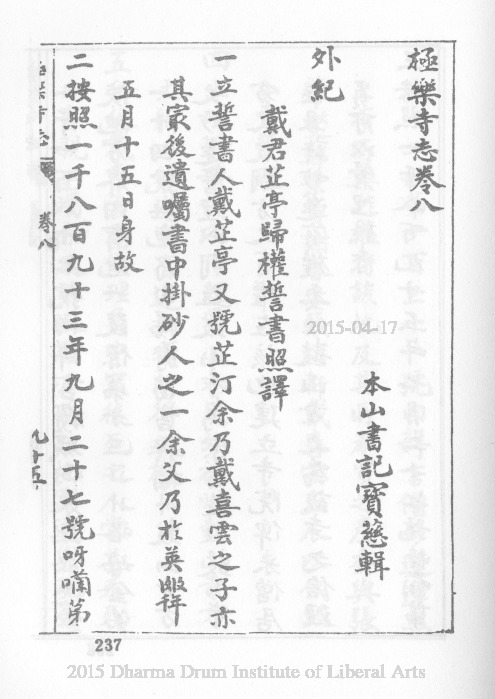 極樂寺志卷八
本山書記寶慈輯
外紀
戴君芷亭歸權誓書照譯
一立誓書人戴芷亭又號芷汀余乃戴喜雲之子亦
其家後遺囑書中掛砂人之一余父乃於英
五月十五日身故
二按照一千八百九十三年九月二十七號呀囒第
極樂寺志 卷八 九十五
237
2015-04-17
2015 Dharma Drum Institute of Liberal Arts